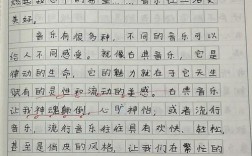 美好。
音乐有很多种，不同的音乐可以
给人不同感受。就像古典音乐，它是
律动的生命，它的魅力就在于它天生
就有的灵性和流动的美感。古典音乐
让我神魂颠倒，心旷神怡，或者流行
音乐，流行音乐往往具有欢快，轻松，
甚至是俏皮的风格，让我们在繁忙的